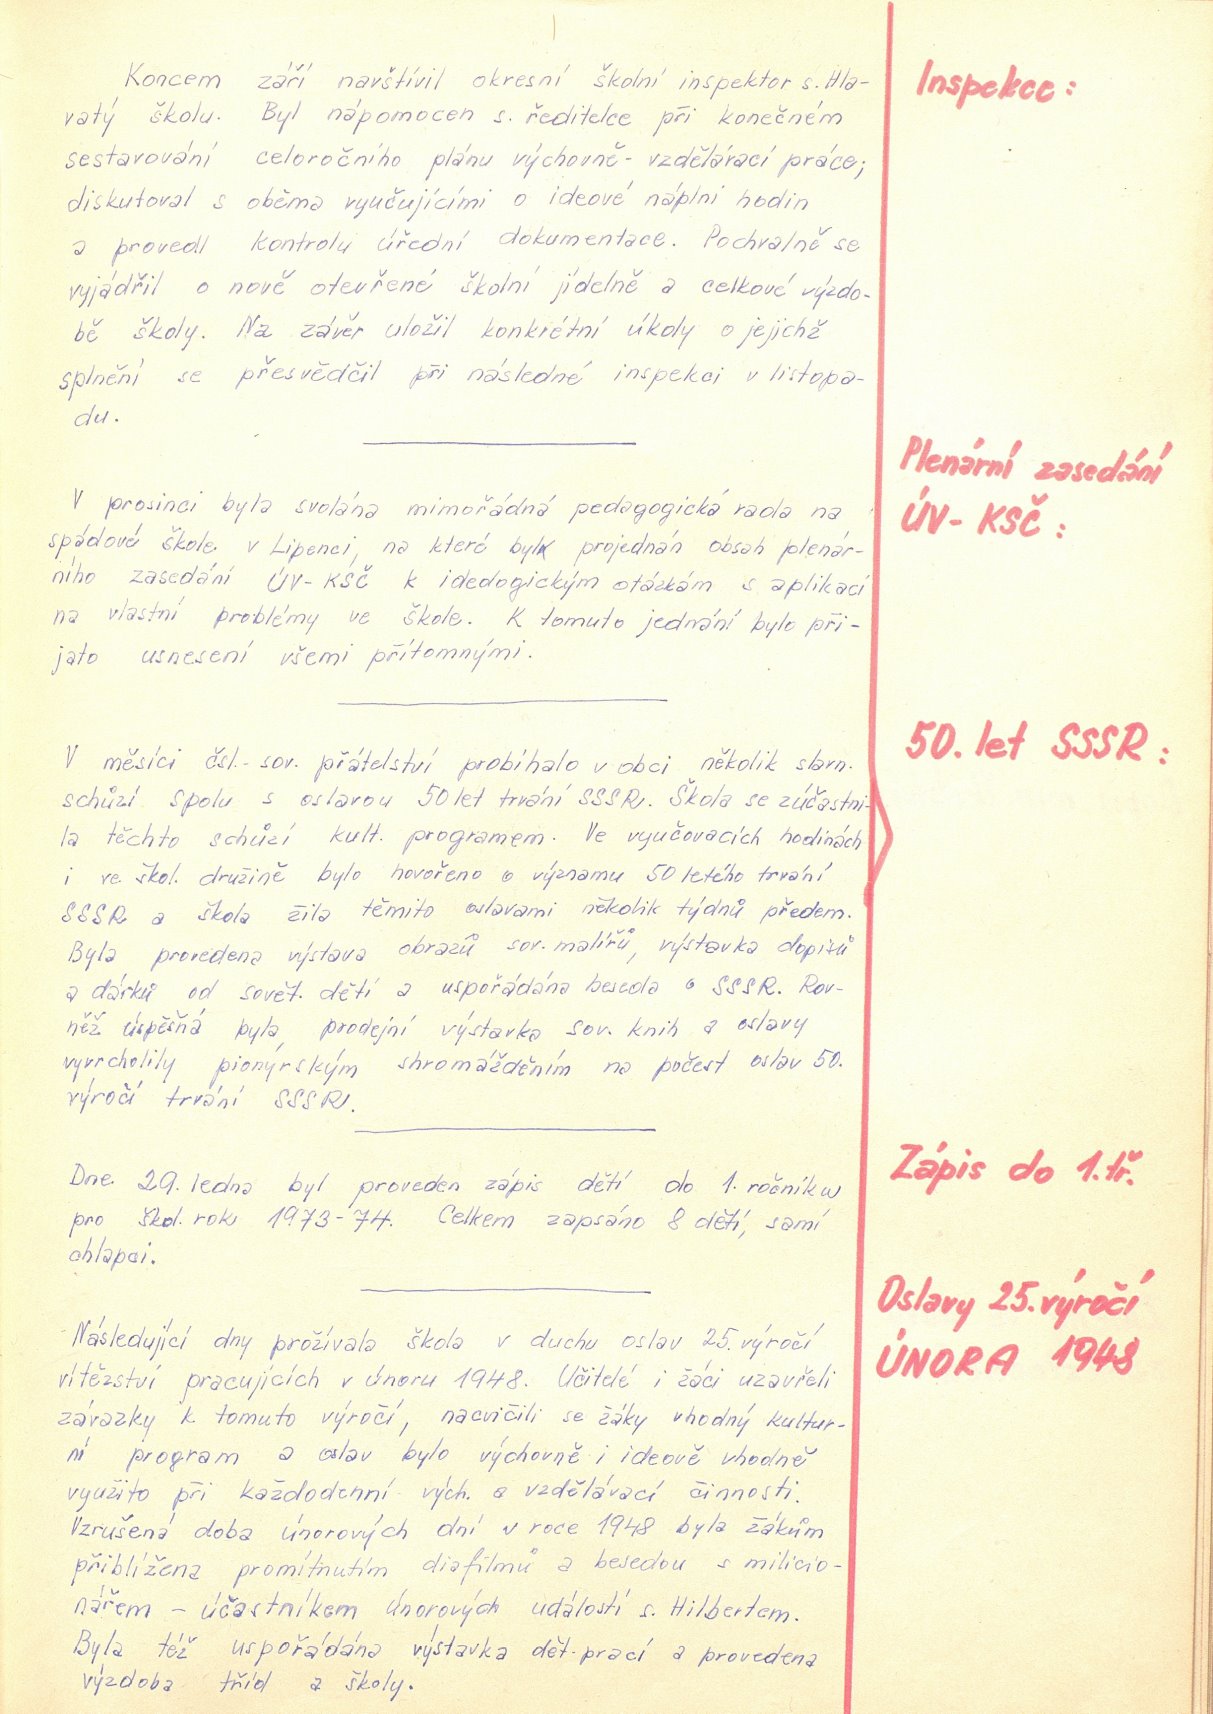 Inspekce:
Koncem září navštívil okresní školní inspektor s. Hla-
vatý školu. Byl nápomocen s. ředitelce při konečném
sestavování celoročního plánu výchovně-vzdělávací práce;
diskutoval s oběma vyučujícími o ideové náplni hodin
a provedl kontrolu úřední dokumentace. Pochvalně se
vyjádřil o nově otevřené školní jídelně a celkové výzdo-
bě školy. Na závěr uložil konkrétní úkoly o jejichž
splnění se přesvědčil při následné inspekci v listopa-
du.
Plenární zasedání
ÚV-KSČ:
V prosinci byla svolána mimořádná pedagogická rada na
spádové škole v Lipenci, na které byl projednán obsah plenár-
ního zasedání ÚV-KSČ k ideologickým otázkám s aplikací
na vlastní problémy ve škole. K tomuto jednání bylo při-
jato usnesení všemi přítomnými.
50. let SSSR:
V měsíci čsl.-sov. přátelství probíhalo v obci několik slavn.
schůzí spolu s oslavou 50 let trvání SSSR. Škola se zúčastni-
la těchto schůzí kult. programem. Ve vyučovacích hodinách
i ve škol. družině bylo hovořeno o významu 50 letého trvání
SSSR a škola žila těmito oslavami několik týdnů předem.
Byla provedena výstava obrazů sov. malířů, výstavka dopisů
a dárků od sovět. dětí a uspořádána beseda o SSSR. Rov-
něž úspěšná byla prodejní výstavka sov. knih a oslavy
vyvrcholily pionýrským shromážděním na počest oslav 50.
výročí trvání SSSR.
Zápis do 1. tř.
Dne 29. ledna byl proveden zápis dětí do 1. ročníku
pro škol. rok 1973-74. Celkem zapsáno 8 dětí, samí
chlapci.
Oslavy 25. výročí
ÚNORA 1948
Následující dny prožívala škola v duchu oslav 25. výročí
vítězství pracujících v únoru 1948. Učitelé i žáci uzavřeli
závazky k tomuto výročí, nacvičili se žáky vhodný kultur-
ní program a oslav bylo výchovně i ideově vhodně
využito při každodenní vých. a vzdělávací činnosti.
Vzrušená doba únorových dní v roce 1948 byla žákům
přiblížena promítnutím diafilmů a besedou s milicio-
nářem - účastníkem únorových událostí s. Hilbertem.
Byla též uspořádána výstavka dět. prací a provedena
výzdoba tříd a školy.